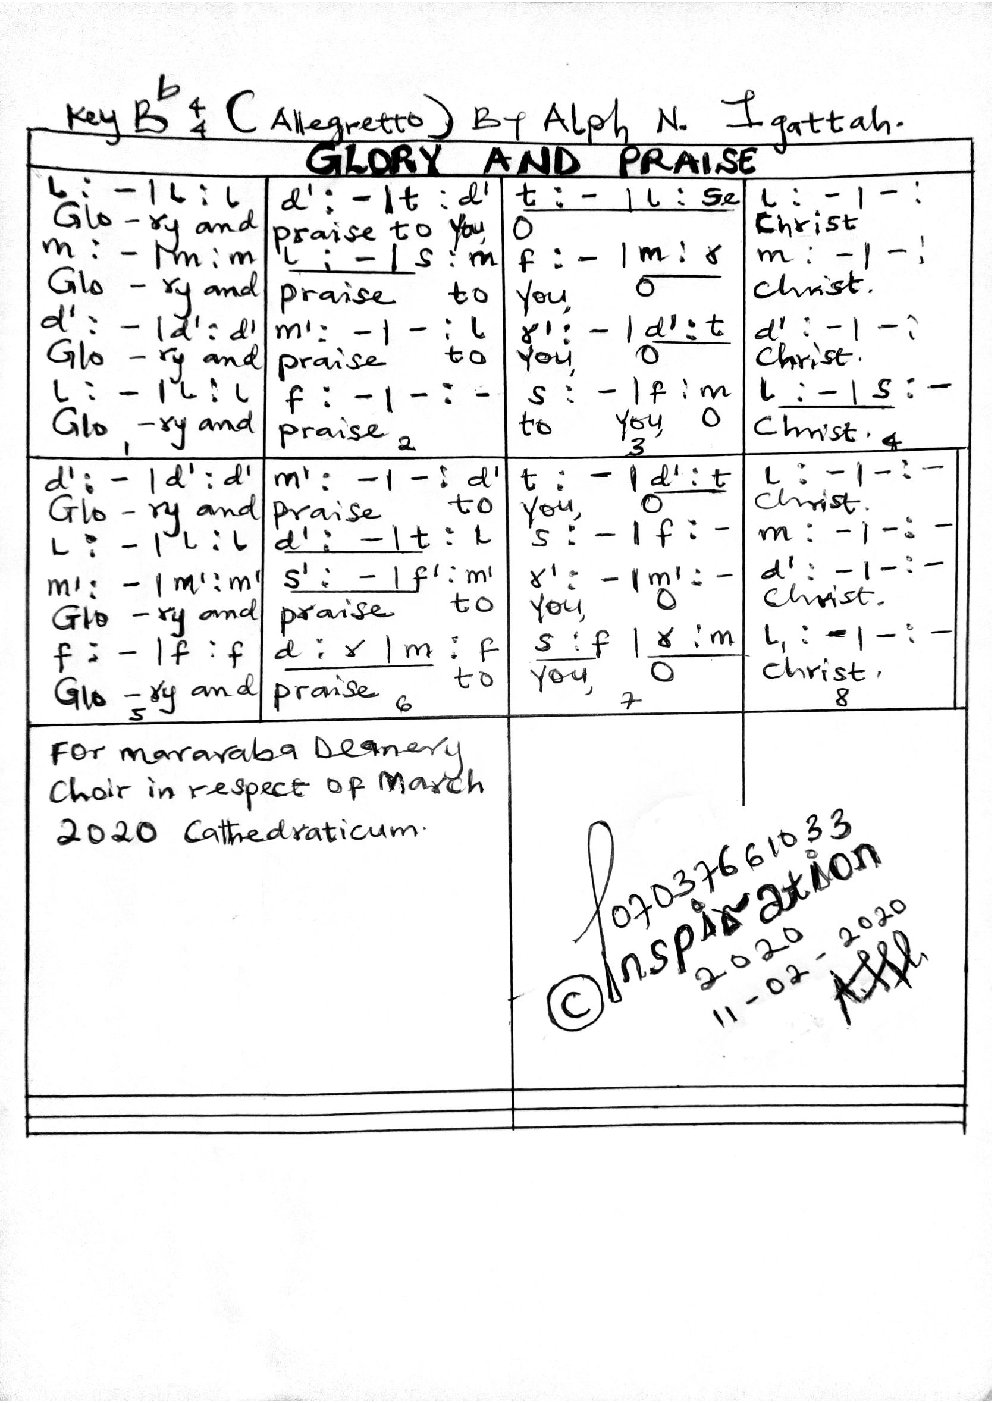 Key Bb 4/4 (Allegretto) By Alph N. Igattah.
GLORY AND PRAISE
L : - | L : L   d' : - | t : d'   t : - | L : se   L : - | - :
Glo - ry and   praise to you,   O   Christ
m : - | m : m   L : - | s : m   f : - | m : r   m : - | - :
Glo - ry and   praise to   you, O   Christ.
d' : - | d' : d'   m' : - | - : L   r' : - | d' : t   d' : - | - :
Glo - ry and   praise to   you, O   Christ.
L : - | L : L   f : - | - : -   s : - | f : m   L : - | s : -
Glo - ry and   praise   to you, O   Christ.
1   2   3   4
d' : - | d' : d'   m' : - | - : d'   t : - | d' : t   L : - | - : -
Glo - ry and   praise to   you, O   Christ.
L : - | L : L   d' : - | t : L   s : - | f : -   m : - | - : -
m' : - | m' : m'   s' : - | f' : m'   r' : - | m' : -   d' : - | - : -
Glo - ry and   praise to   you, O   Christ.
f : - | f : f   d : r | m : f   s : f | r : m   L, : - | - : -
Glo - ry and   praise to   you, O   Christ.
5   6   7   8
For mararaba Deanery
Choir in respect of March
2020 Cathedraticum.
07037661033
© Inspiration
2020
11-02-2020